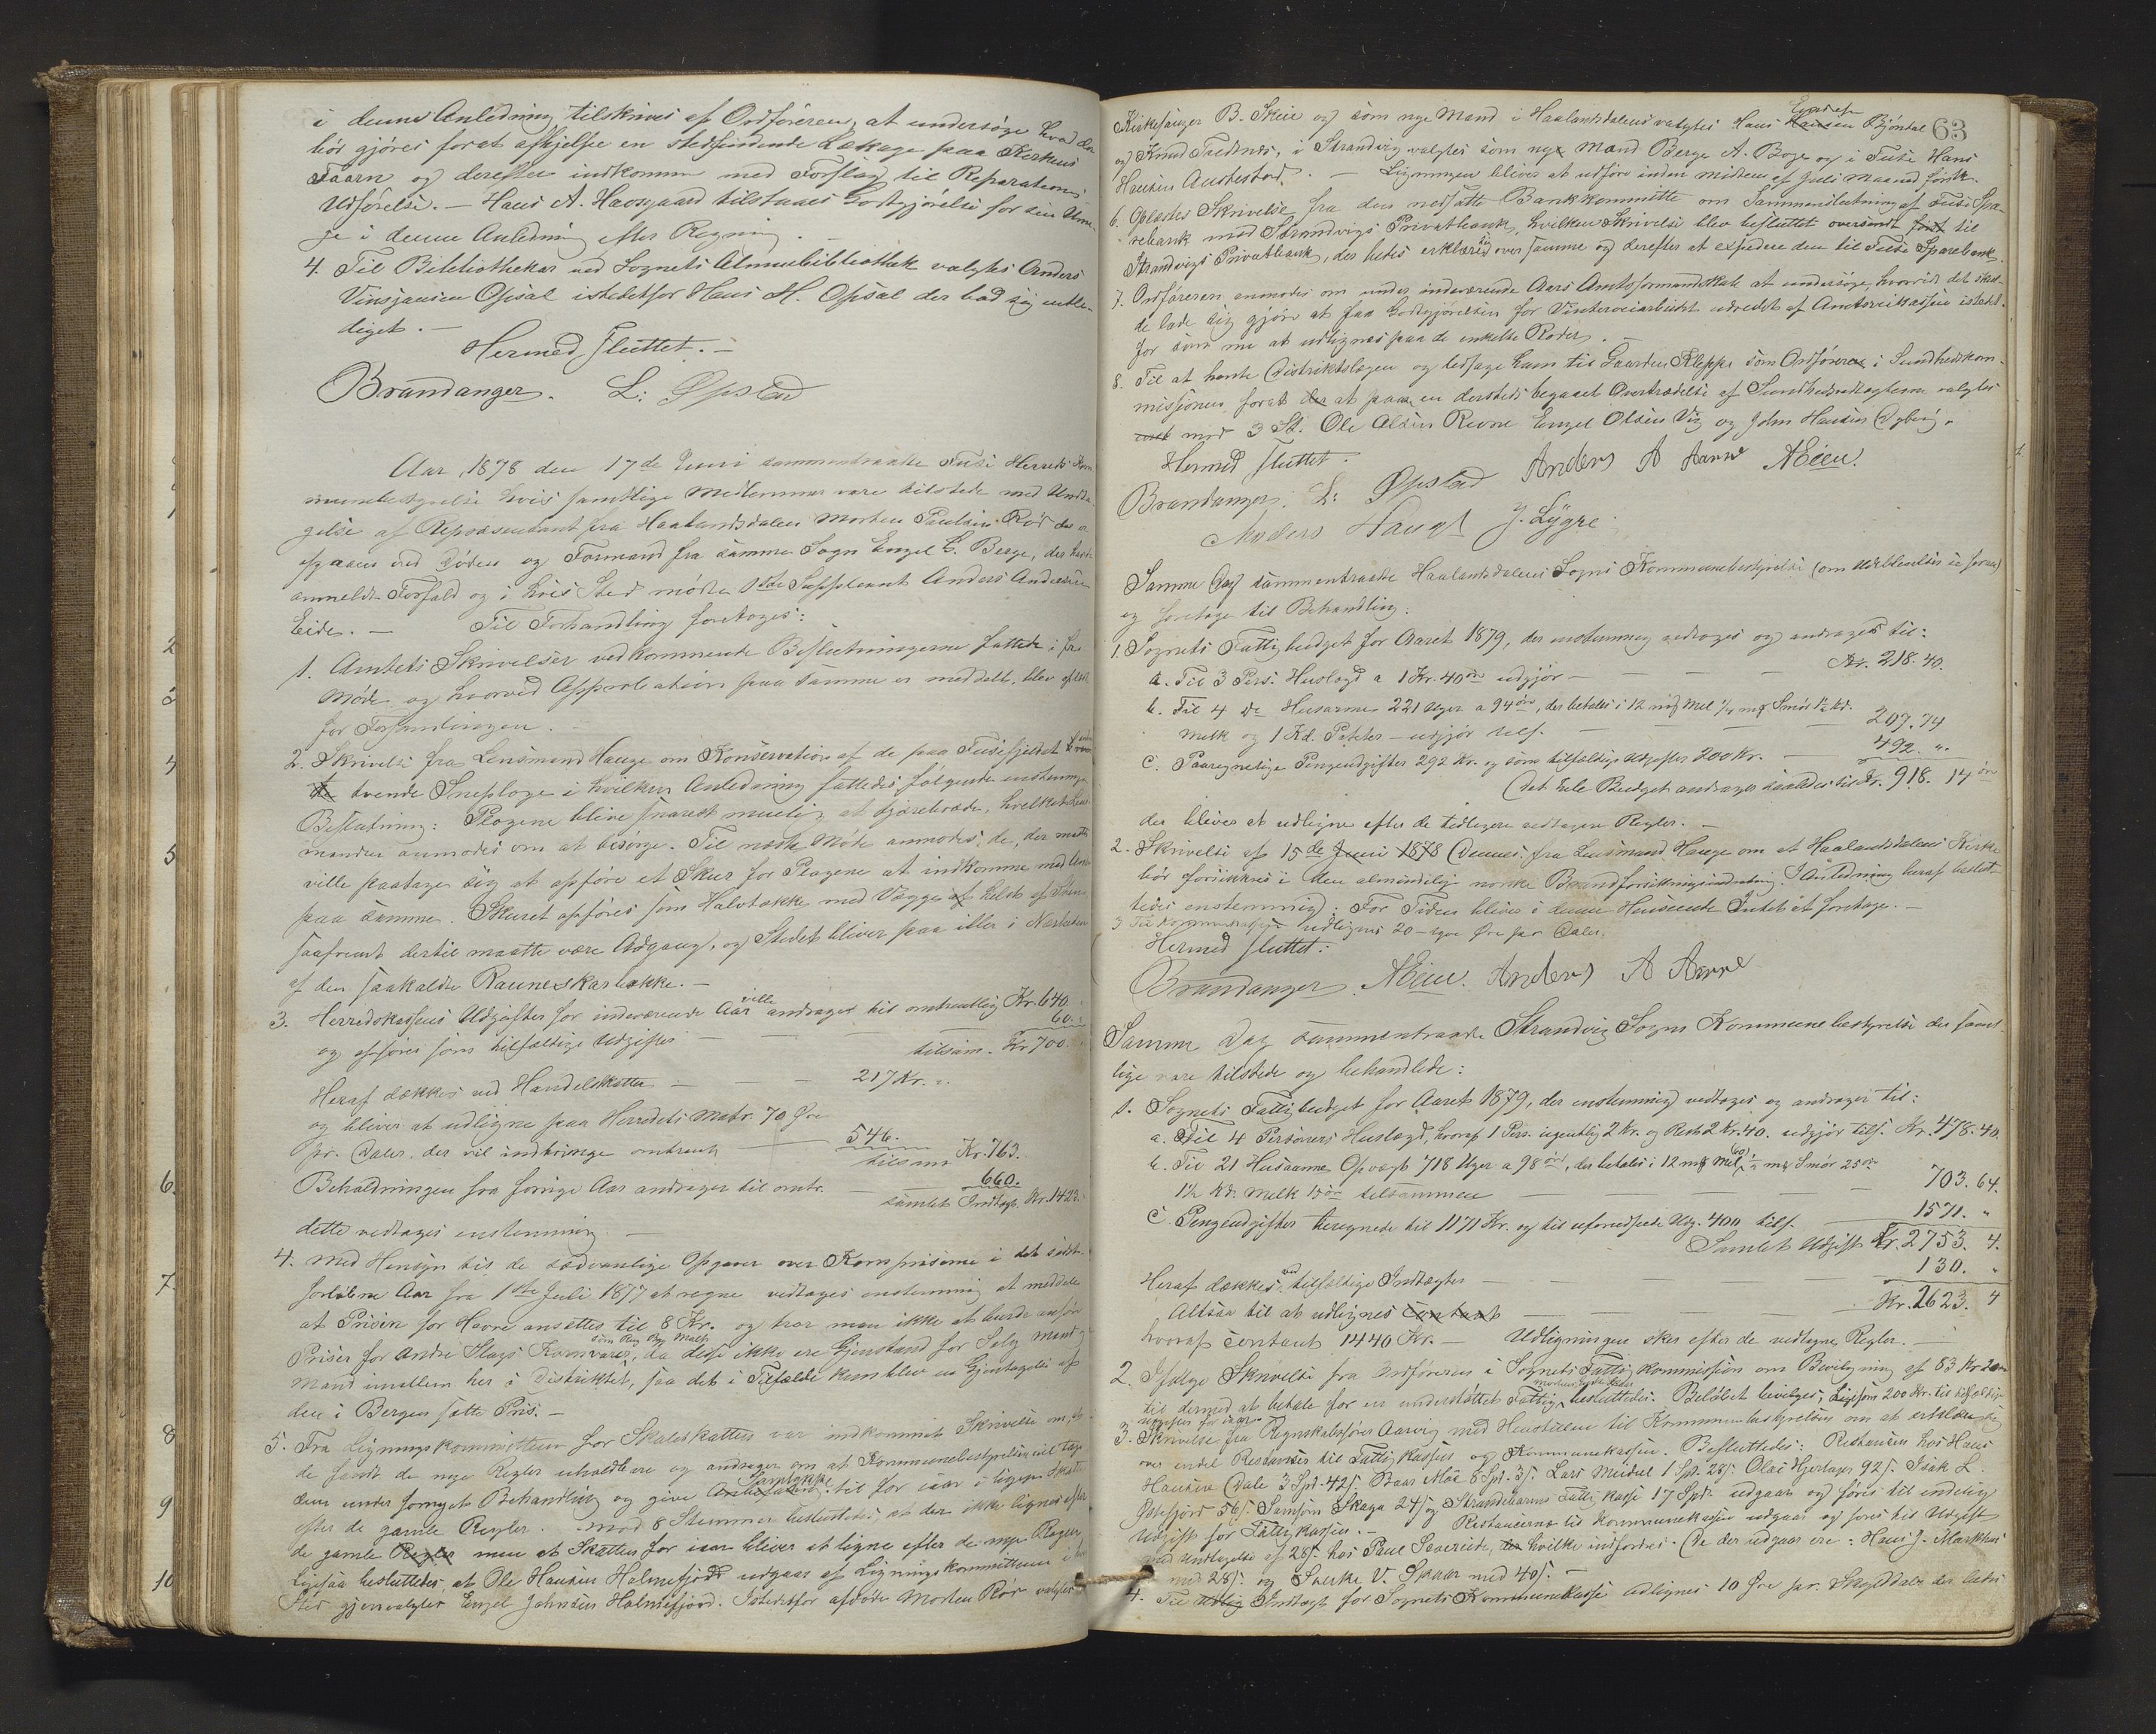 i denne Anledning tilskrives af Ordføreren, at undersøge hvad der
bør gjøres forat afhjelpe en stedfindende Lækage paa Kirkens
Taarn og derefter indkomme med Forslag til Reparationens
Udførelse. — Hans A. Havsgaard tilstaaes Godtgjørelse for sin Uma-
ge i denne Anledning efter Regning.
4. Til Bibliothekar ved Sognets Almuebibliothek valgtes Anders
Vinsjansen Opsal istedetfor Hans H. Opsal der bad sig entle-
diget. —
Hermed sluttet. —
Brandanger. L: Øpstad
Aar 1878 den 17de Juni sammentraadte Fuse Herreds Kom-
munebestyrelse hvis samtlige Medlemmer vare tilstede med Undta-
gelse af Repræsentant fra Haalandsdalen Morten Paulsen Rör der er
afgaaen ved Døden og Formand fra samme Sogn Engel L. Berge, der havde
anmeldt Forfald og i hvis Sted mødte 1ste Suppleant Anders Andersen
Eide. — Til Forhandling foretoges:
1. Amtets Skrivelser vedkommende Beslutningerne fattede i fra
Møde og hvorved Approbation paa samme er meddelt, blev oplæst
for Forsamlingen.
2. Skrivelse fra Lensmand Hauge om Konservation af de paa Fusefjeldet
de tvende Sneploge i hvilken Anledning fattedes følgende enstemmige
Beslutning: Plogene blive snarest muelig at tjærebræde, hvilket Lens-
manden anmodes om at besørge. Til næste Møde anmodes de, der maatte
ville paatage sig at opføre et Skur for Plogene at indkomme med Anbud
paa samme. Skuret opføres som Halvtække med Vægge af helst af Steen
saafremt dertil maatte være Adgang, og Stedet bliver paa eller i Nærheden
af den saakaldte Rauneskarbakke. —
3. Herredskassens Udgifter for indeværende Aar ville andrages til omtrentlig Kr. 640
og opføres som tilfældige Udgifter — 60. "
tilsam. Kr 700. "
Heraf dækkes ved Handelskatten — — — 217 Kr. ".
og bliver at udligne paa Herredets Matr. 70 Øre
pr. Daler, der vil indbringe omtrent — 546.
tilsam Kr. 763.
Beholdningen fra forrige Aar andrager til omtr. — — 660.
samlet Indtægt. Kr. 1423.
dette vedtages enstemmig. —
4. Med Hensyn til de sædvanlige Opgaver over Kornpriserne i det sidst-
forløbne Aar fra 1ste Juli 1877 at regne vedtages enstemmig at meddele
at Prisen for Havre ansættes til 8 Kr. og tror man ikke at burde anføre
Priser for Andre Slags Kornvarer, som Rug Byg Malt, da disse ikke ere Gjenstand for Salg Mand og
Mand imellem her i Distriktet, saa det i Tilfælde kun blev en Gjentagelse af
den i Bergen satte Pris. —
5. Fra Ligningskommitteen for Skoleskatten var indkommet Skrivelse om, at
de fandt de nye Regler uholdbare og andrager om at Kommunebestyrelsen vil tage
dem under fornyet Behandling og give Samtykke til for iaar i ligne Skatten
efter de gamle Regler. Mod 8 Stemmer besluttedes, at der ikke lignes efter
de gamle Regler men at Skatten for iaar bliver at ligne efter de nye Regler.
Ligesaa besluttedes, at Ole Hansen Holmefjord udgaar af Ligningskommitteen i hvis
Sted gjenvalgtes Engel Johnsen Holmefjord. Istedetfor afdøde Morten Rör valgtes
63
Kirkesanger B. Skeie og som nye Mand i Haalandsdalen valgtes Hans Hansen Bjöndal
og Knud Tredtnes, i Strandvig valgtes som nye Mand Berge A. Boge og i Fuse Hans
Hansen Austestad. — Ligningen bliver at udføre inden midten af Juli Maaned førstk.
6. Oplæstes Skrivelse fra den nedsatte Bankkommitte om Sammenslutning af Fuse Spa-
rebank med Strandvigs Privatbank, hvilken Skrivelse blev besluttet oversendt først til
Strandvigs Privatbank, der bedes erklære sig over samme og derefter at expedere den til Fuse Sparebank.
7. Ordføreren anmodes om under indeværende Aars Amtsformandskab at undersøge, hvorvidt det sked-
de lade sig gjøre at faa Godtgjørelsen for Vinterveiarbeidet udredet af Amtsveikassen istedet-
for som nu at udlignes paa de enkelte Roder. —
8. Til at hente Distriktslægen og ledsage ham til Gaarden Kleppe som Ordførere i Sundhedskom-
missionen, forat der at paase en dersteds begaaet Overtrædelse af Sundhedsvedtægterne valgtes
med 3 St. Ole Olsen Revne Engel Olsen Vig og John Hansen Dyberg. "
Hermed sluttet:
Brandanger. L: Øpstad Anders A Aarre AEien.
Anders Haugs J. Lygre
Samme Dag sammentraadte Haalandsdalens Sogns Kommunebestyrelse (om Udeblivelser se foran)
og foretoge til Behandling.
1. Sognets Fattigbudget for Aaret 1879, der enstemmig vedtoges og andrages til:
a. Til 3 Pers. Huslægd a 1 Kr. 40 Øre udgjør — — — Kr. 218. 40.
b. Til 4 do Husarme 221 Uger a 94 Øre, der betales i 12 mk Mel 1/4 mk Smør 1 1/2 Kd.
melk og 1 Kd. Poteter — udgjør tils. — — 207. 74
c. Paaregnelige Pengeudgifter 292 Kr. og som tilfældige Udgifter 200 Kr. — 492. ".
Det hele Budget andrages saaledes til Kr. 918. 14 Øre
der bliver at udligne efter de tidligere vedtagne Regler. —
2. Skrivelse af 15de Juni 1878 Dennes. fra Lensmand Hauge om at Haalandsdalens Kirke
bør forsikkres i den almindelige norske Brandforsikringsindretning. I Anledning heraf beslut-
tedes enstemmig: For Tiden bliver i denne Henseende Intet at foretage. —
3 Til Kommunekassen udlignes 20 — tyve Øre pr Daler.
Hermed sluttet:
Brandanger. AEien. Anders A Aarre
Samme Dag sammentraadte Strandvig Sogns Kommunebestyrelse der samt-
lige vare tilstede og behandlede:
1. Sognets Fattigbudget for Aaret 1879, der enstemmig vedtoges og andrages til:
a. Til 4 Personers Huslægd, hvoraf 1 Pers. ugentlig 2 Kr. og Resten 2 Kr. 40. udgjør tils. Kr. 478. 40.
b. Til 21 Husarme Opvægt 718 Uger a 98 Øre, der betales i 12 mk Mel, mk Smør 25 Øre
1 1/2 Kd. Melk 15 Øre tilsammen — — — — 703. 64.
c. Pengeudgifter beregnede til 1171 Kr. og til uforudseede Udg. 400 tils. — 1571. "
Samlet Udgift Kr. 2753. 4.
Heraf dækkes ved tilfældige Indtægter — — — 130. "
Altsaa til at udlignes contant — — Kr. 2623. 4
hvoraf contant 1440 Kr. — Udligningen sker efter de vedtagne Regler. —
2. Ifølge Skrivelse fra Ordføreren i Sognets Fattigkommission om Bevilgning af 83 Kr
til dermed at betale for en understøttet Fattig, besluttedes: Beløbet bevilges; Ligesom 200 Kr. til tilfældige
Udgifter for iaar.
3. Skrivelse fra Regnskabsfører Aarvig med Henstillen til Kommunebestyrelsen om at erklære sig
over endel Restanser til Fattigkassen og Kommunekassen. Besluttedes: Restancen hos Hans
Hansen Dale 3 Spd. 42 s. Baar Moe 8 Spd. 3 s. Lars Meidell 1 Spd. 28 s. Olai Hjertager 92 s. Isak L.
56 s. Samson Skaga 24 s og Strandebarms Fattigkasse 17 Spd. udgaar og føres til endelig
Udgift for Fattigkassen. — Restancerne til Kommunekassen udgaar og føres til Udgift
med Undtagelse af 28 s. hos Paul Severeide, der hvilke indfordres. De der udgaar ere: Hans J. Markhus
med 28 s. og Sverke V. Skaar med 40 s. —
4. Til Udlig Indtægt for Sognets Kommunekasse udlignes 10 Øre pr. Skylddaler der bedes